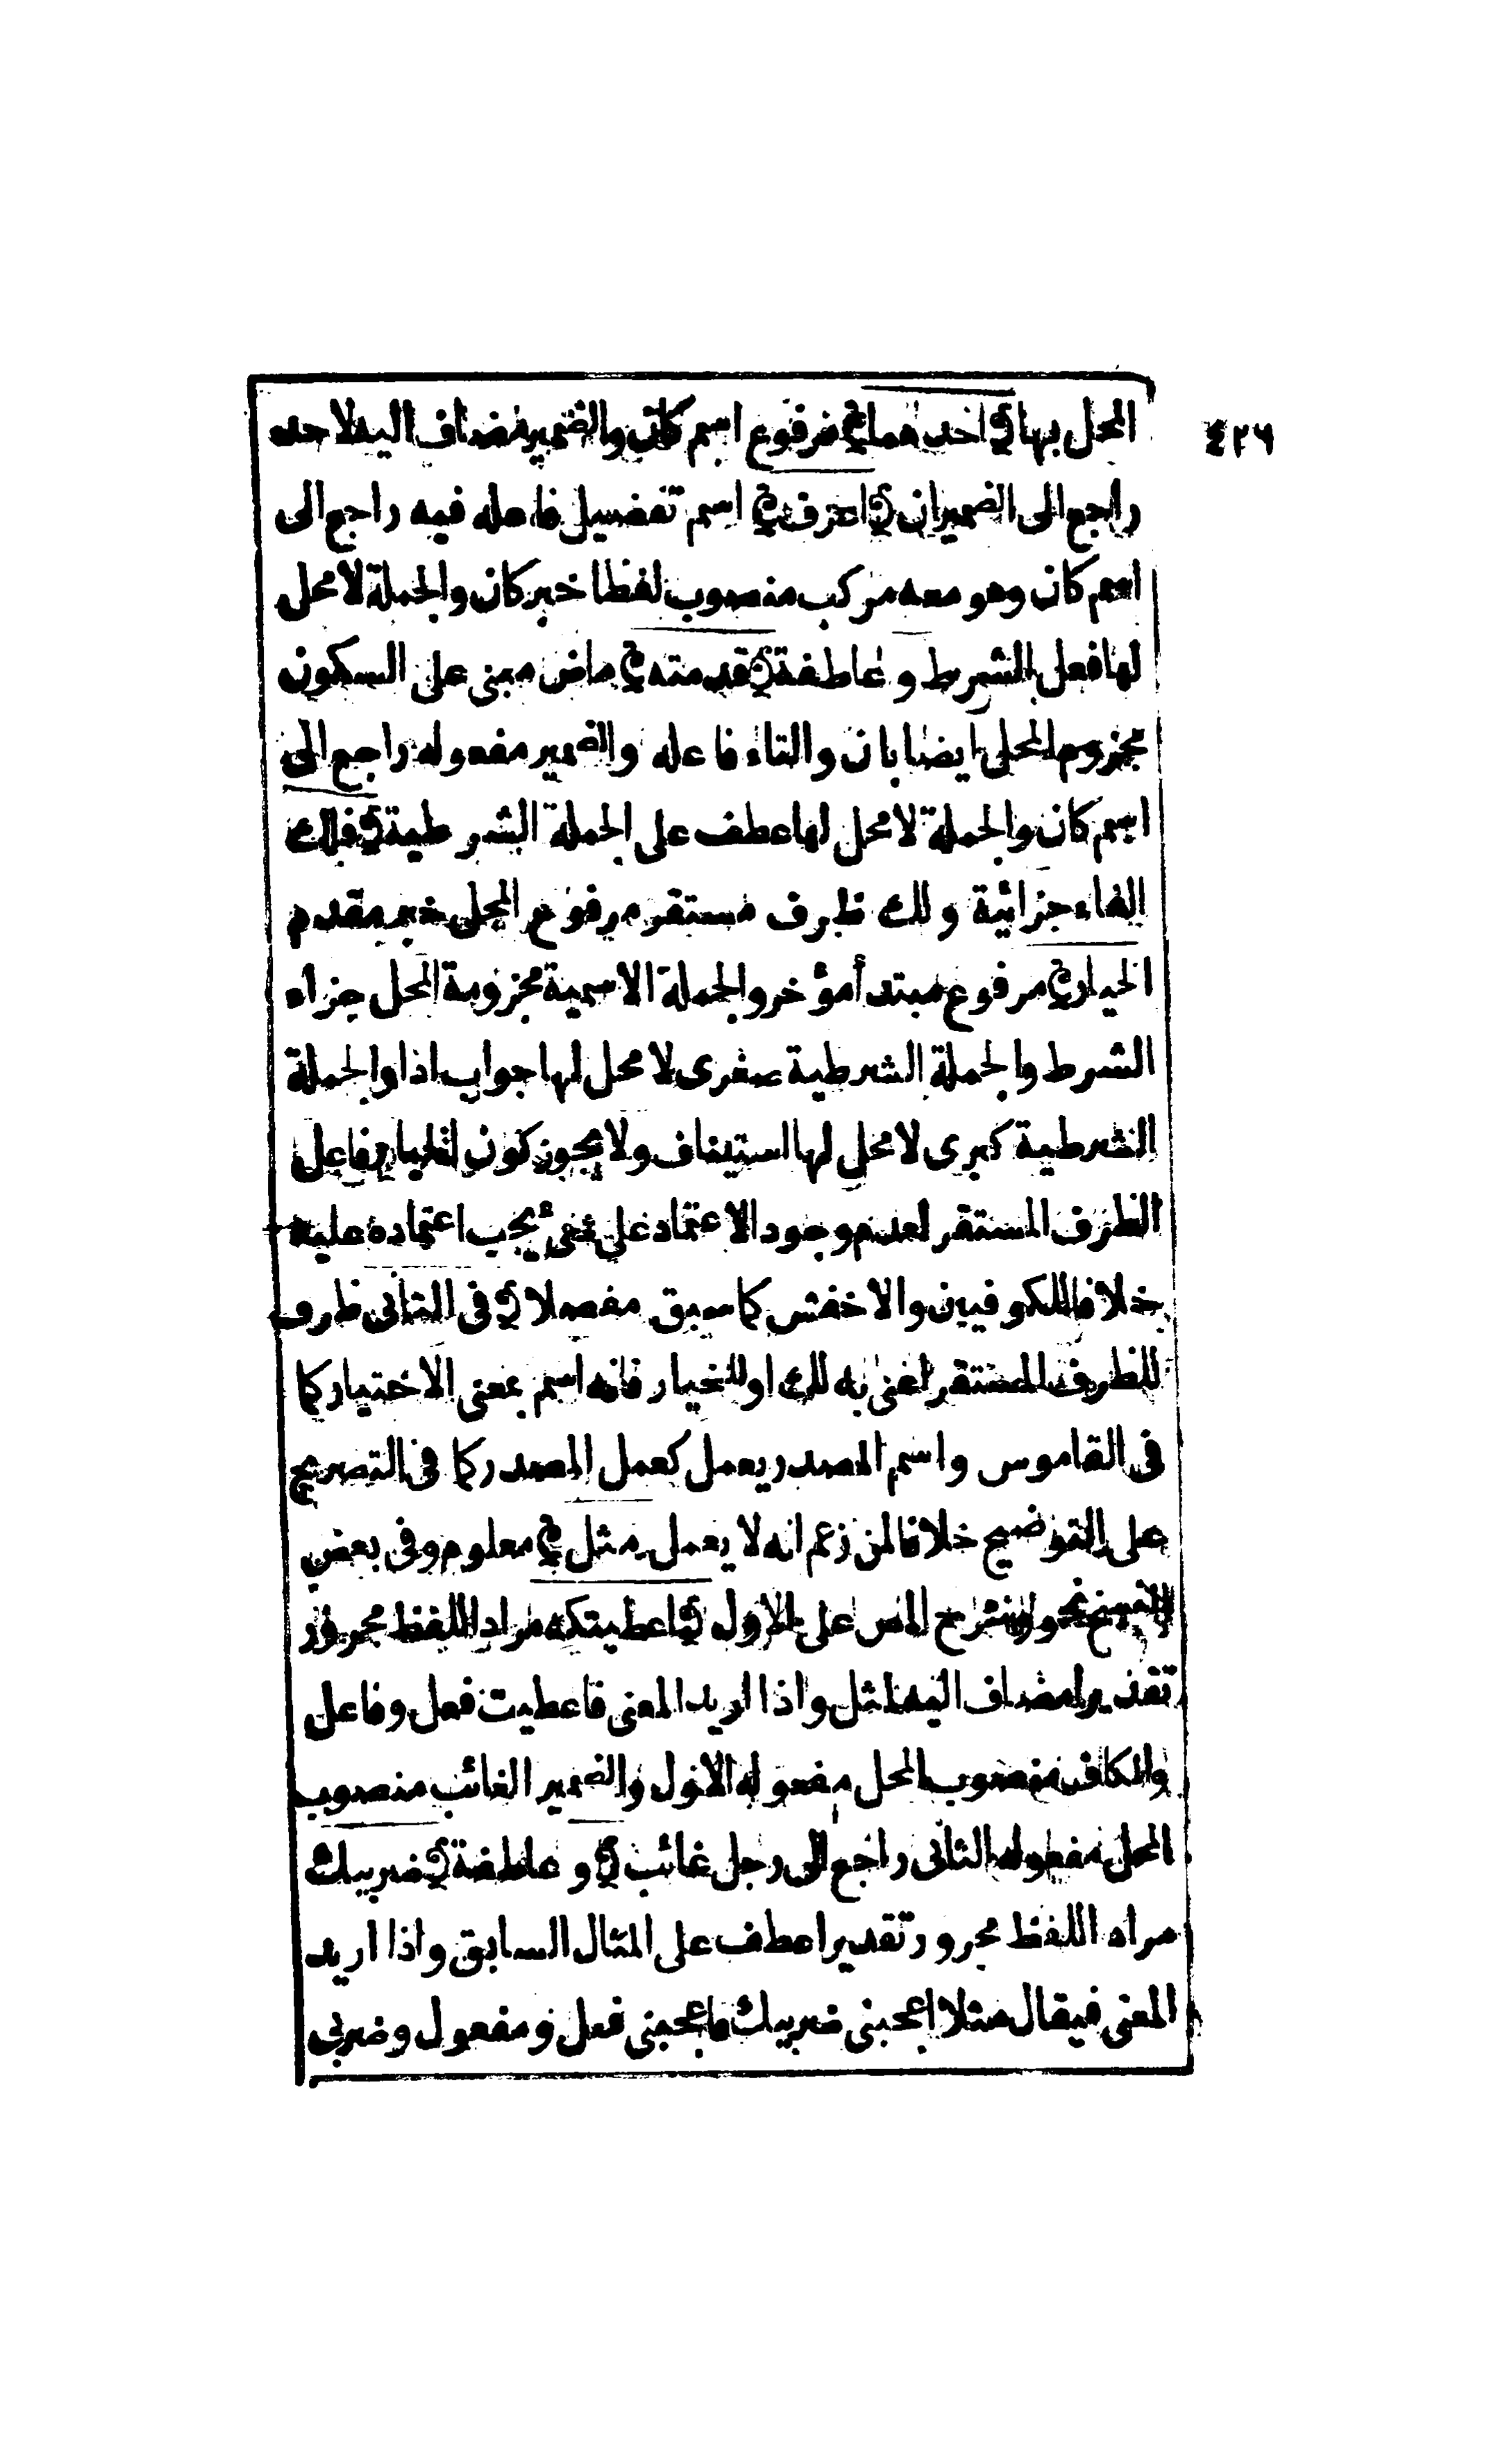 ٤٢٦
المحل بها ﴿ احدهما ﴾ مرفوع اسم كان والضمير مضاف اليه لاحد
راجع الى الضميران ﴿ اعرف ﴾ اسم تفضيل فاعله فيه راجع الى
اسم كان وهو معه مركب منصوب لفظا خبر كان والجملة لا محل
لها فعل الشرط و عاطفة ﴿ قدمته ﴾ ماض مبنى على السكون
مجزوم المحل ايضا بان والتاء فاعله والضمير مفعوله راجع الى
اسم كان والجملة لا محل لها عطف على الجملة الشرطية ﴿ فلك
الفاء جزائية ولك ظرف مستقر مرفوع المحل خبر مقدم
الخيار ﴾ مرفوع مبتدأ مؤخر والجملة الاسمية مجزومة المحل جزاء
الشرط والجملة الشرطية صغرى لا محل لها جواب اذا والجملة
الشرطية كبرى لا محل لها استيناف ولا يجوز كون الخيار فاعل
الظرف المستقر لعدم وجود الاعتماد على شئ يجب اعتماده عليه
خلافا للكوفيين والاخفش كما سبق مفصلا ﴿ فى الثانى ظرف
للظرف المستقر اعنى به لك او للخيار فانه اسم بمعنى الاختيار كما
فى القاموس واسم المصدر يعمل كعمل المصدر كما فى التصريح
على التوضيح خلافا لمن زعم انه لا يعمل مثل ﴾ معلوم وفى بعض
النسخ نحو على الاول ﴿ اعطيتكه مراد اللفظ مجرور
تقديرا مضاف اليه لمثل واذا اريد المعنى فاعطيت فعل وفاعل
والكاف منصوب المحل مفعوله الاول والضمير الغائب منصوب
المحل مفعوله الثانى راجع الى رجل غائب ﴿ و عاطفة ﴿ ضربيك
مراد اللفظ مجرور تقديرا عطف على المثال السابق واذا اريد
المعنى فيقال مثلا اعجبنى ضربيك فاعجبنى فعل ومفعول وضربى